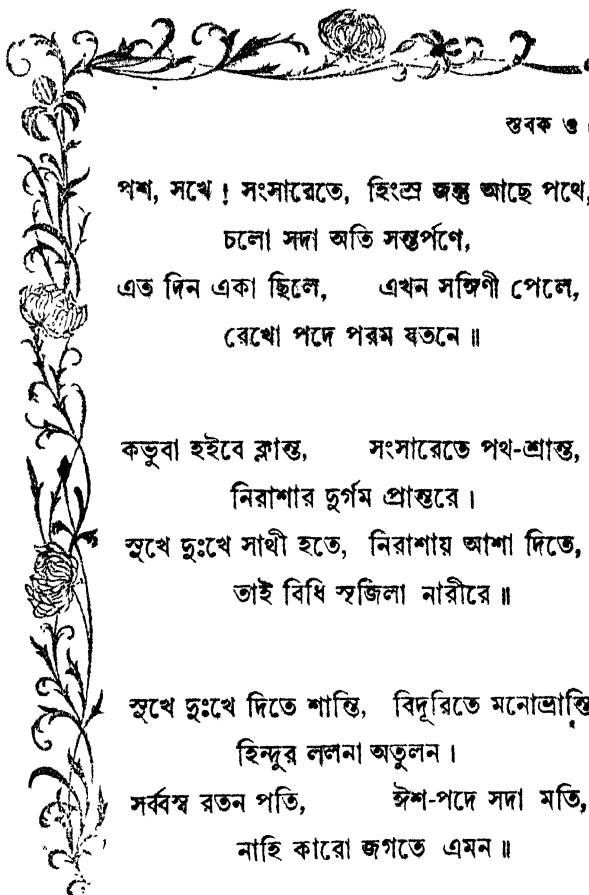 স্তবক ও।
পশ, সখে! সংসারেতে, হিংস্র জন্তু আছে পথে,
চলো সদা অতি সন্তর্পণে,
এত দিন একা ছিলে, এখন সঙ্গিণী পেলে,
রেখো পদে পরম যতনে॥
কভুবা হইবে ক্লান্ত, সংসারেতে পথ-শ্রান্ত,
নিরাশার দুর্গম প্রান্তরে।
সুখে দুঃখে সাথী হতে, নিরাশায় আশা দিতে,
তাই বিধি সৃজিলা নারীরে॥
সুখে দুঃখে দিতে শান্তি, বিদূরিতে মনোভ্রান্তি
হিন্দুর ললনা অতুলন।
সর্ব্বস্ব রতন পতি, ঈশ-পদে সদা মতি,
নাহি কারো জগতে এমন॥